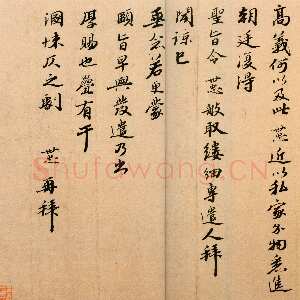 高義何以及此 世 近以私家分物素進
朝廷復得
聖旨令 世 敢取縷細專遣人拜
聞諒已
垂念若更蒙
頤旨早與發遣乃出
厚賜也疊有干
溷悚仄之劇 世 再拜
Shufawang.CN